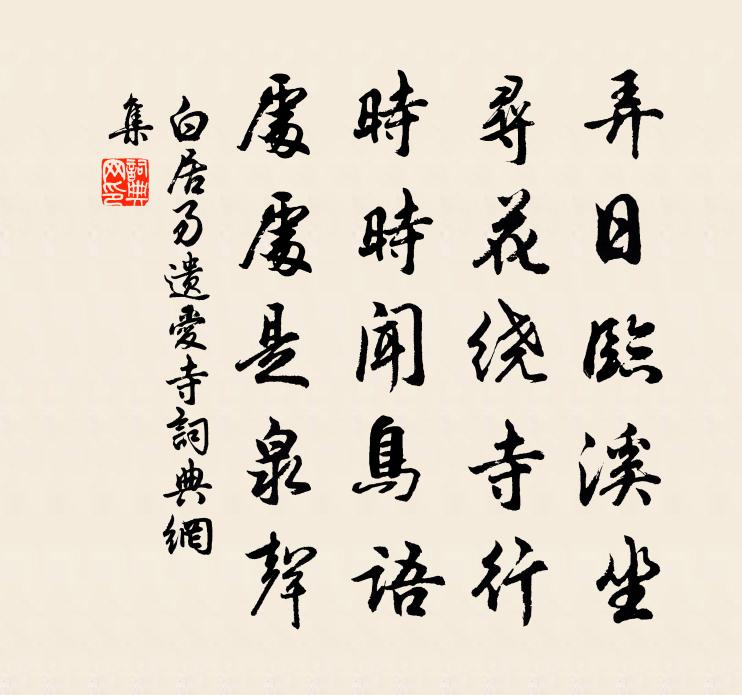 弄日臨溪坐
尋花繞寺行
時時聞鳥語
處處是泉聲
白居易遺愛寺詞典網
集
詞典
网印